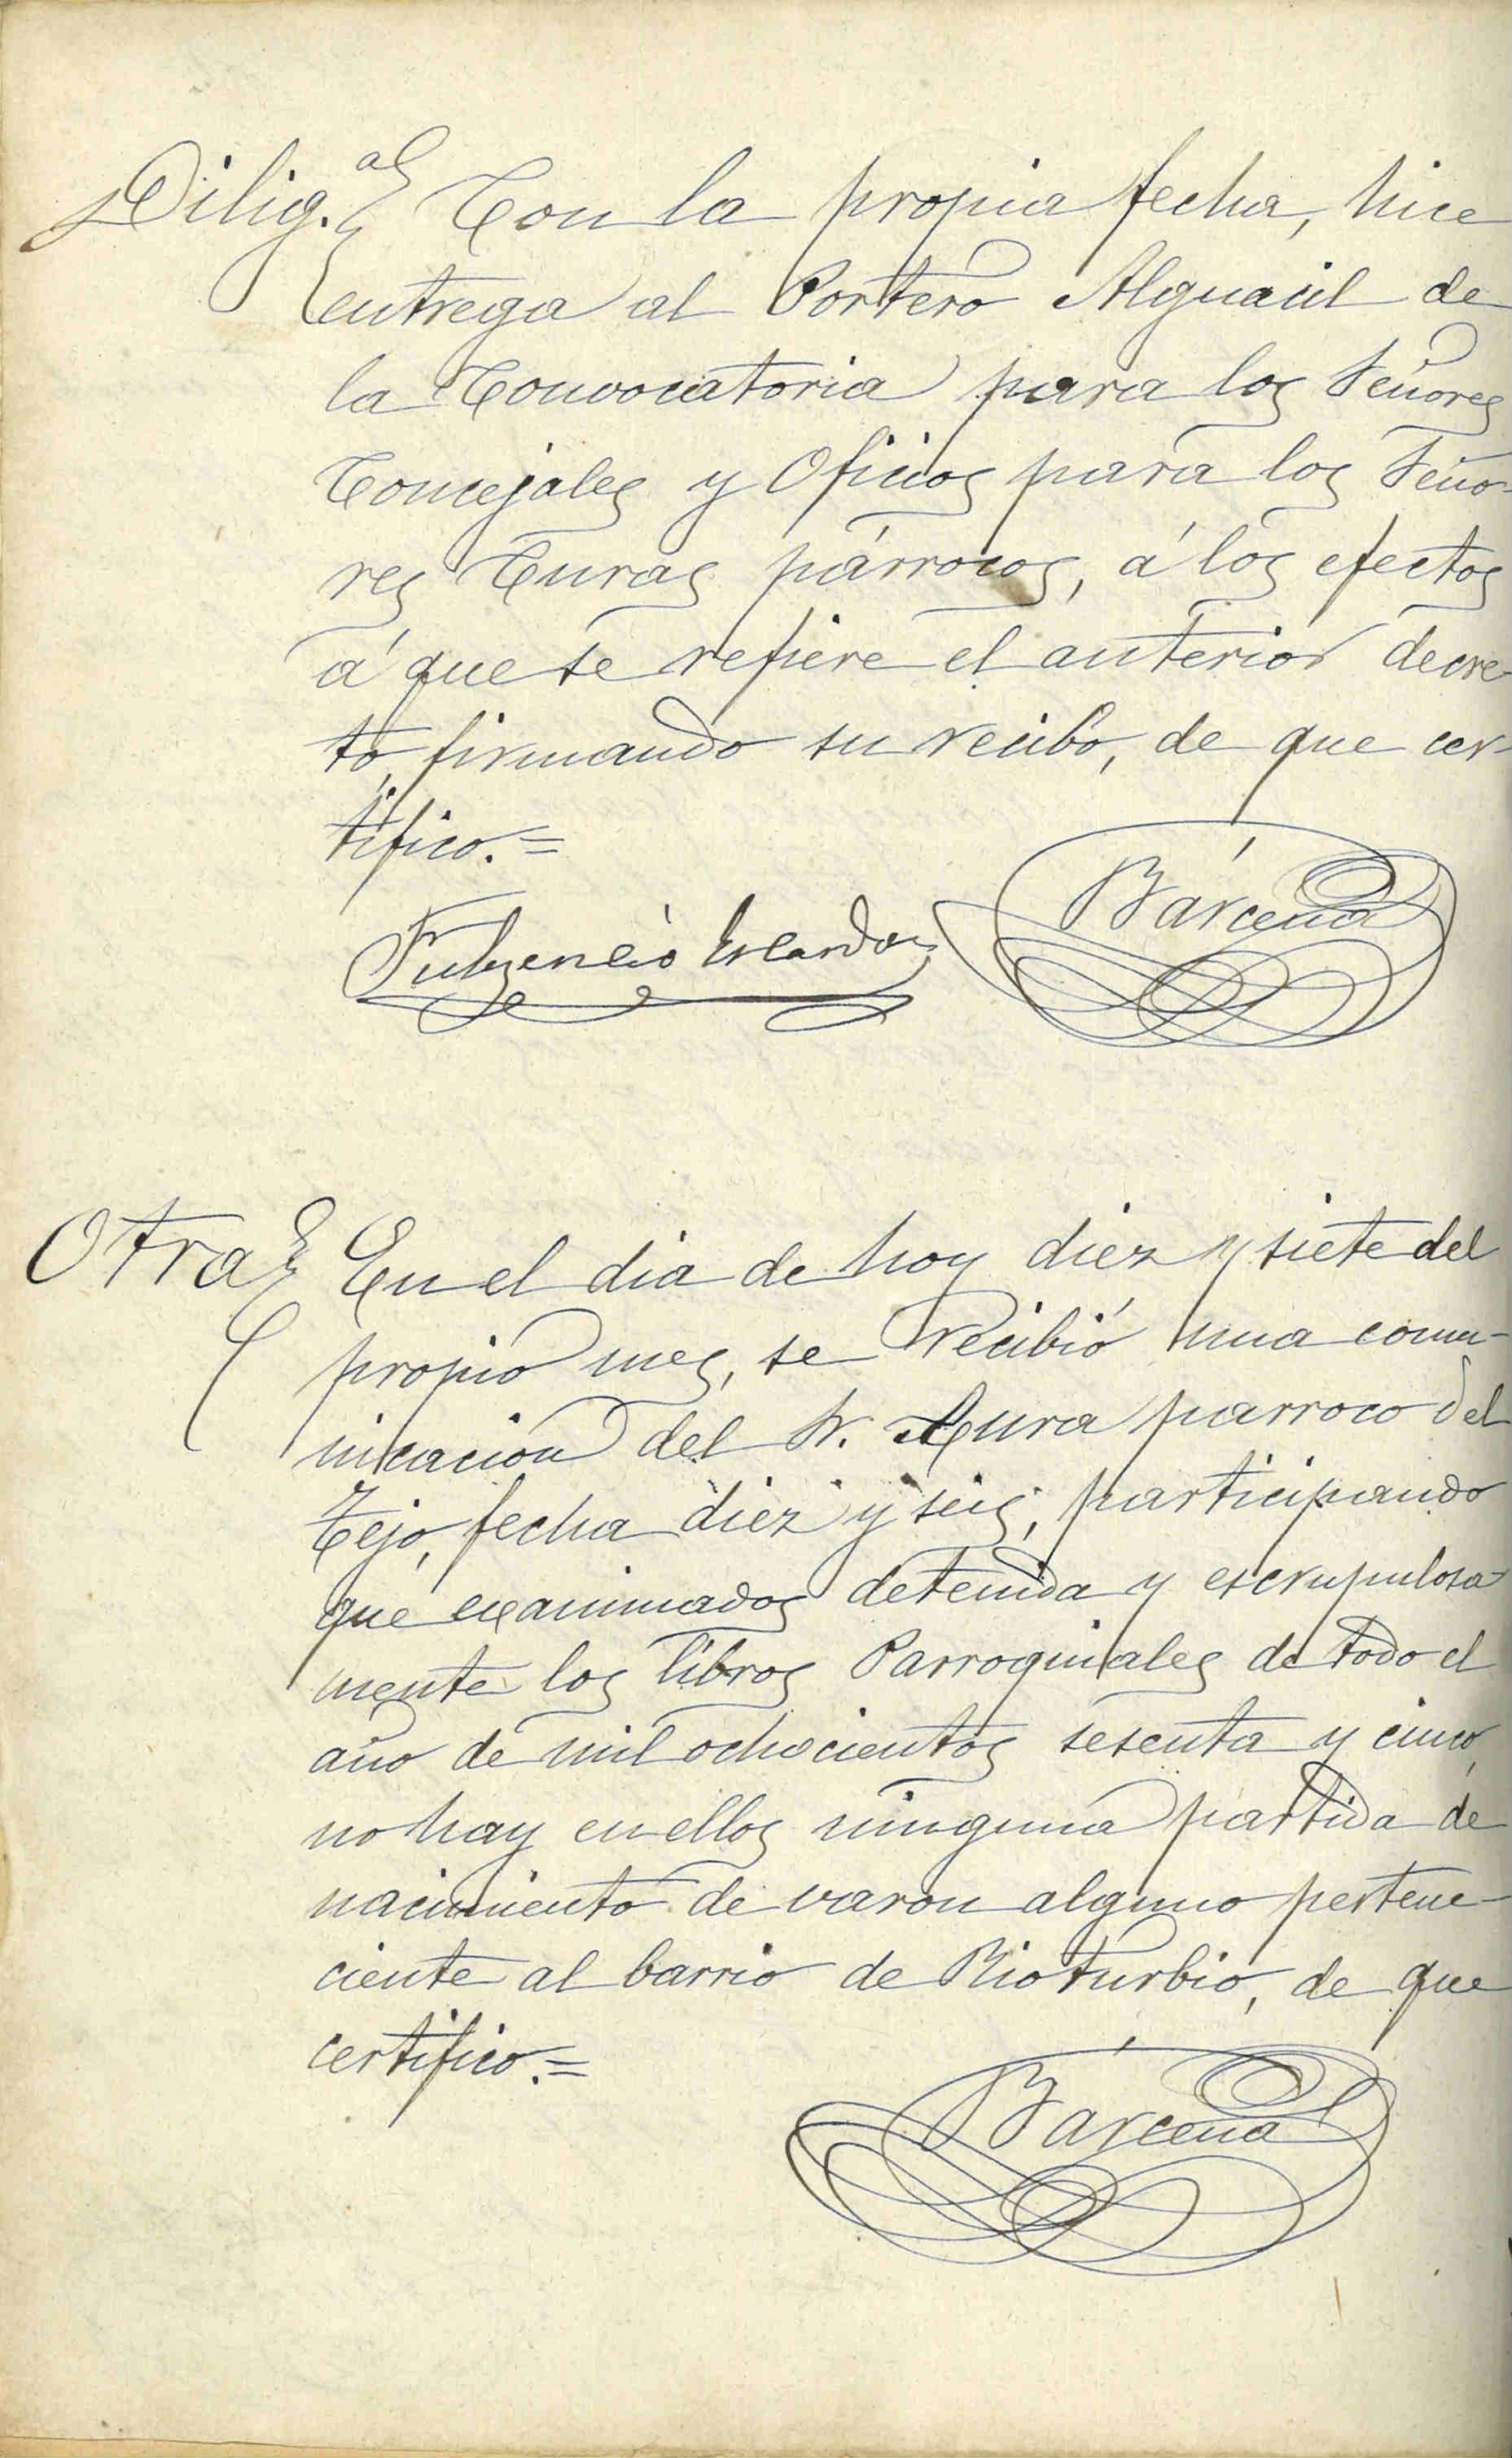 Dilig.ª Con la propia fecha, hice
entrega al Portero Alguacil de
la Convocatoria para los Señores
Concejales y Oficios para los Seño-
res Curas párrocos, á los efectos
á que se refiere el anterior decre-
to, firmando su recibo, de que cer-
tifico.=
Fulgencio Escandon Bárcena
Otra En el dia de hoy diez y siete del
propio mes, se recibió una comu-
nicación del Sr. Cura párroco del
Tejo, fecha diez y seis, participando
que examinados detenida y escrupulosa
mente los libros Parroquiales de todo el
año de mil ochocientos sesenta y cinco,
no hay en ellos ninguna partida de
nacimiento de varon alguno pertene-
ciente al barrio de Rioturbio, de que
certifico.=
Bárcena